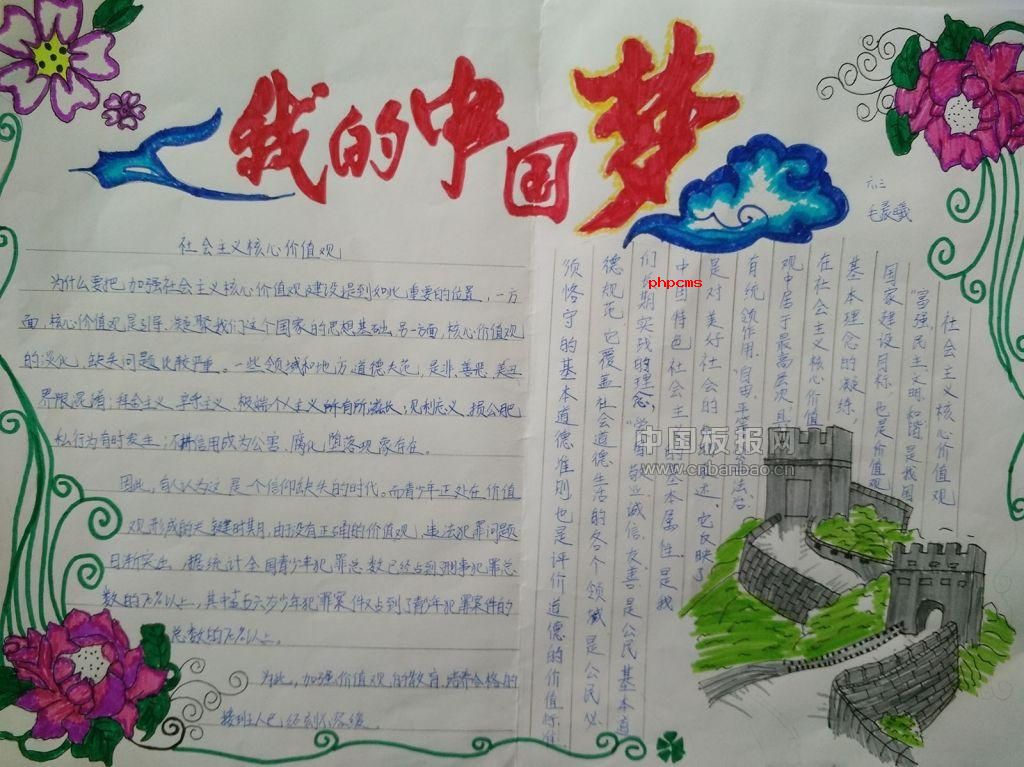 我的中国梦
六.二
毛晨曦
社会主义核心价值观
为什么要把加强社会主义核心价值观建设提到如此重要的位置，一方
面，核心价值观是引导、凝聚我们这个国家的思想基础。另一方面，核心价值观
的淡化，缺失问题比较严重。一些领域和地方道德失范，是非、善恶、美丑
界限混淆，拜金主义、享乐主义、极端个人主义所有所滋长，见利忘义、损公肥
私行为有时发生；不讲信用成为公害，腐化堕落现象存在。
因此，有人认为这是个信仰缺失的时代。而青少年正处在价值
观形成的关键时期，由于没有正确的价值观，违法犯罪问题
日渐突出。据统计全国青少年犯罪总数已经占到刑事犯罪总
数的70%以上，其中十五六岁少年犯罪案件又占到了青少年犯罪案件的
总数的70%以上。
为此，加强价值观的教育，培养合格的
接班人已经刻不容缓。
社会主义核心价值观（一）
“富强、民主、文明、和谐”是我国
国家建设目标，也是价值观
基本理念的凝练，
在社会主义核心价值
观中居于最高层次，具
有统领作用。“自由、平等、公正、法治”
是对美好社会的生动表述，它反映了
中国特色社会主义的基本属性，是我
们长期实践的理念。“爱国、敬业、诚信、友善”是公民基本道
德规范，它覆盖社会道德生活的各个领域，是公民必
须恪守的基本道德准则，也是评价道德的价值标准。
phpcms
中国板报网
www.cnbanbao.cn